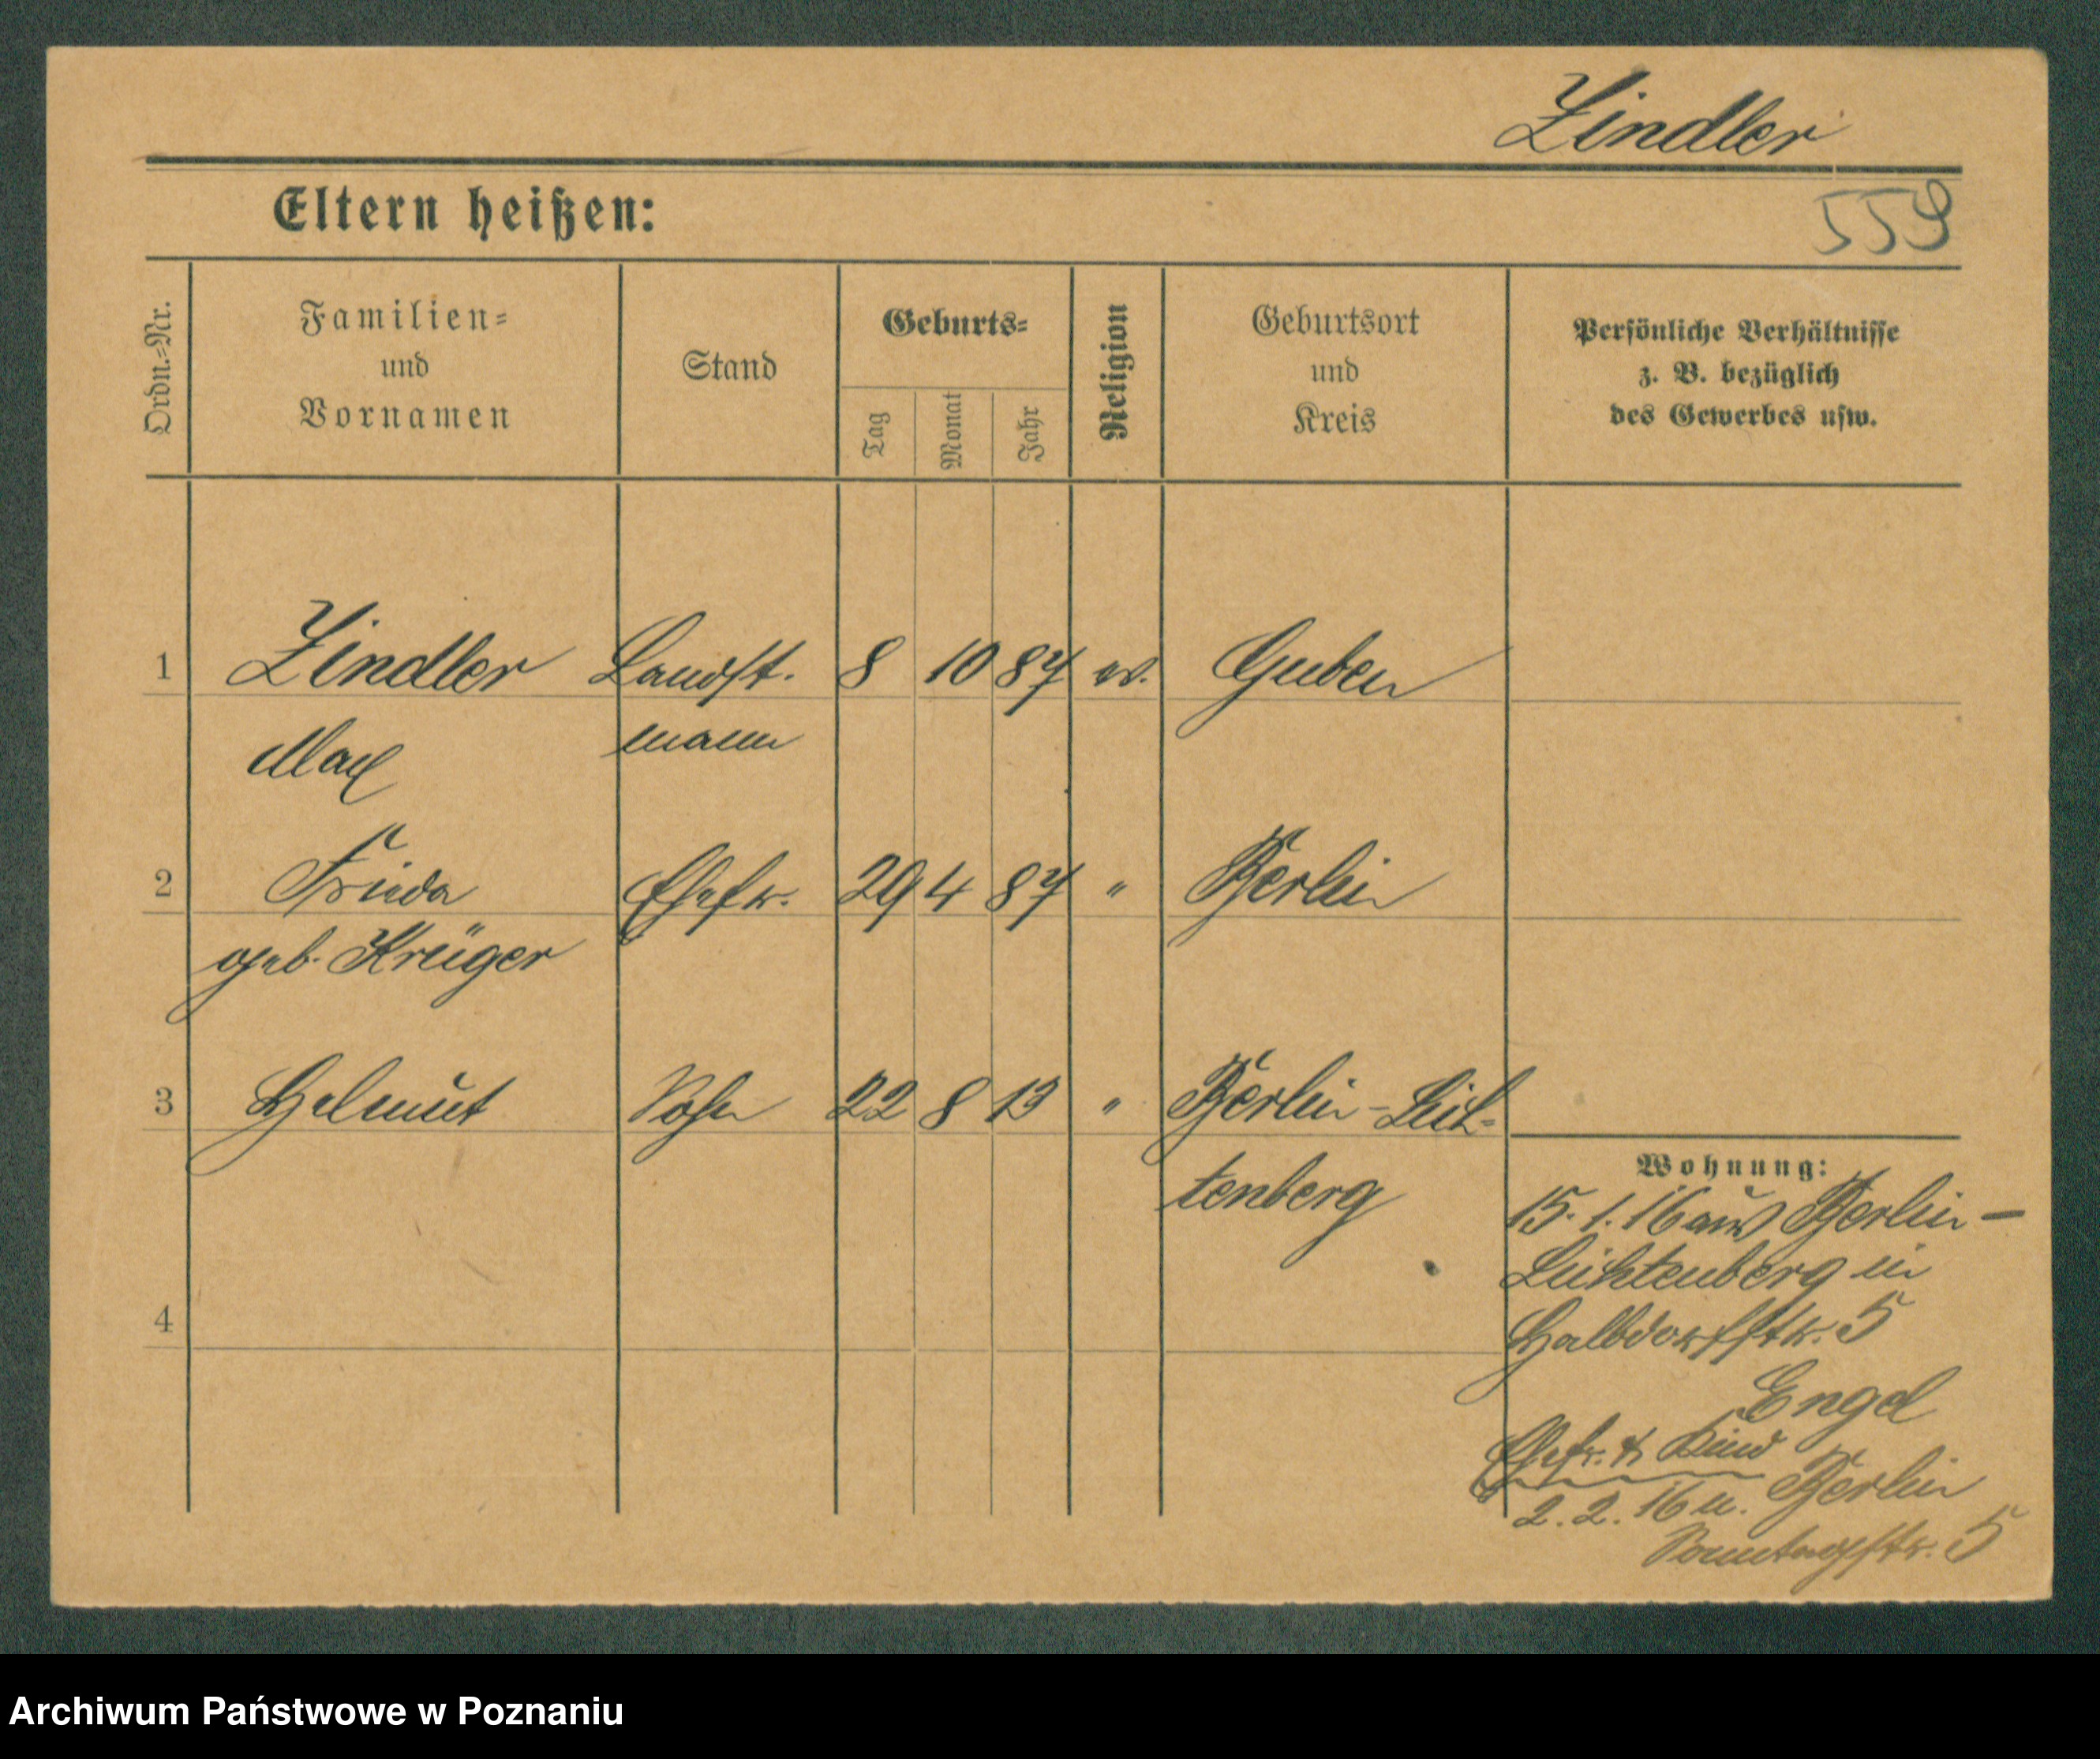 Zindler
559
Eltern heißen:
Ordn.=Nr.
Familien=
und
Vornamen
Stand
Geburts=
Tag
Monat
Jahr
Religion
Geburtsort
und
Kreis
Persönliche Verhältnisse
z. B. bezüglich
des Gewerbes usw.
1 Zindler Landst. 8 10 87 ev. Guben
Max mann
2 Frieda Ehefr. 29 4 87 " Berlin
geb. Krüger
3 Helmut Sohn 22 8 13 " Berlin-Lich-
tenberg
4
Wohnung:
15.1.16 aus Berlin-
Lichtenberg in
Halbdorfstr. 5
Engel
Ehefr. & Kind
2.2.16 n. Berlin
Sonntagstr. 5
Archiwum Państwowe w Poznaniu